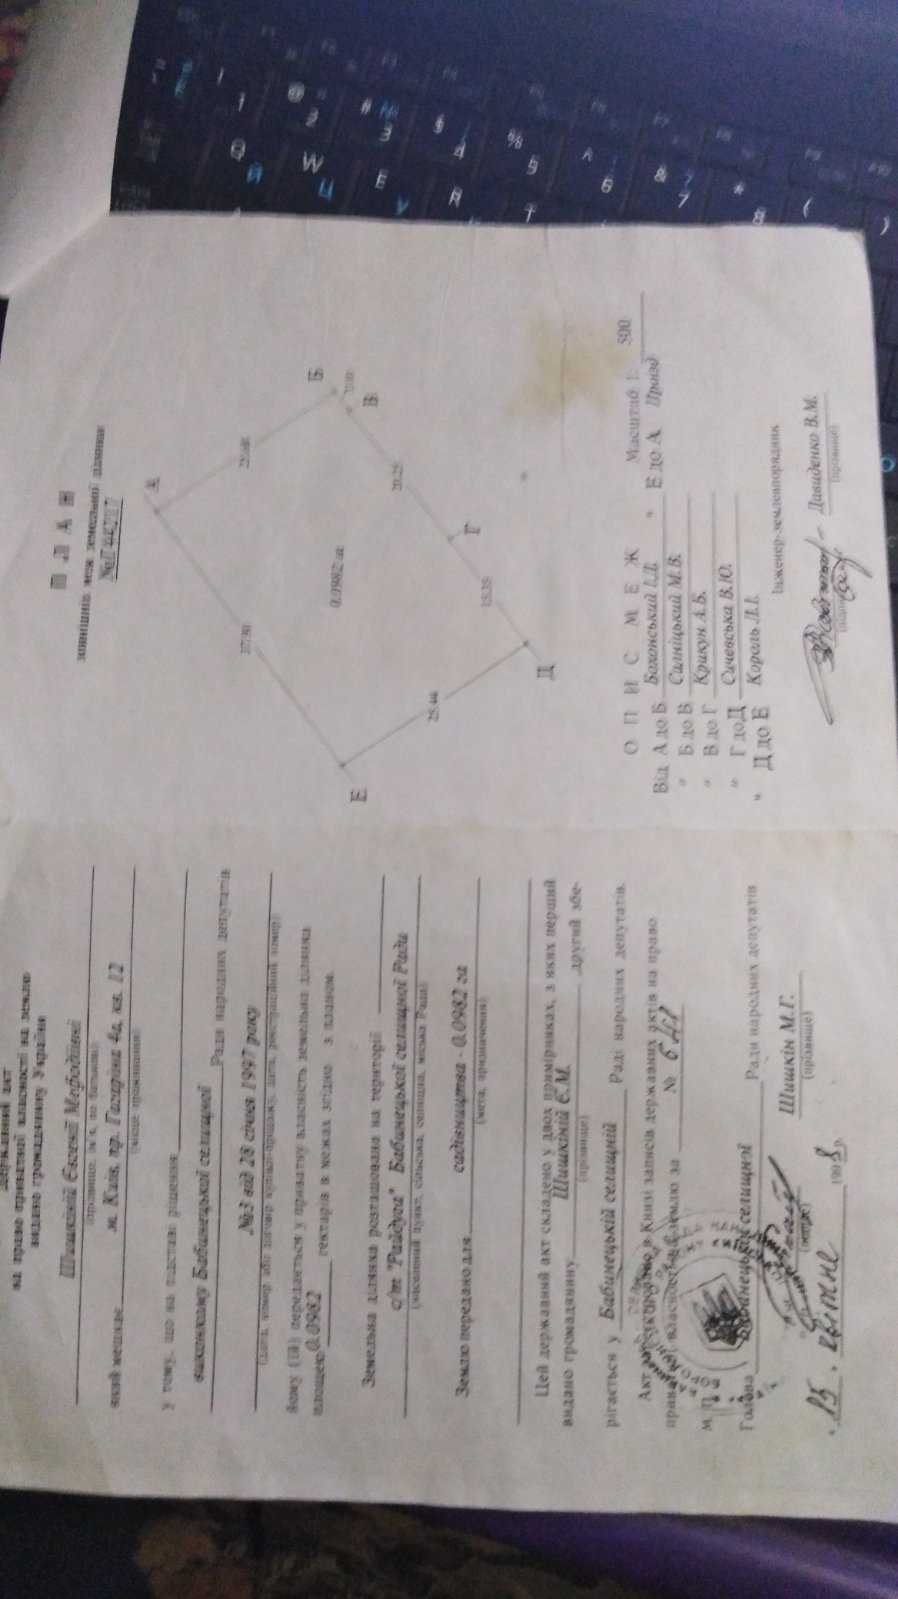 Державний акт
на право приватної власності на землю
видано громадянину України
Шишкіній Євгенії Мефодіївні
(прізвище, ім'я, по батькові)
який мешкає м. Київ, пр. Гагаріна 4а, кв. 12
(місце проживання)
у тому, що на підставі рішення
виконкому Бабинецької селищної Ради народних депутатів
№3 від 28 січня 1997 року
(дата, номер або договір купівлі-продажу, дата, реєстраційний номер)
йому (їй) передається у приватну власність земельна ділянка
площею 0.0982 гектарів в межах згідно з планом.
Земельна ділянка розташована на території
с/т "Райдуга" Бабинецької селищної Ради
(населений пункт, сільська, селищна, міська Рада)
Землю передано для садівництва - 0.0982 га
(мета, призначення)
Цей державний акт складено у двох примірниках, з яких перший
видано громадянину Шишкіній Є.М. , другий збе-
(прізвище)
рігається у Бабинецькій селищній Раді народних депутатів.
Акт зареєстровано в Книзі записів державних актів на право
приватної власності на землю за №
М. П.
Голова Бабинецької селищної Ради народних депутатів
Шишкін М.Г.
(підпис) (прізвище)
" 15 " квітня 1998 р.
П Л А Н
зовнішніх меж земельної ділянки
А
Б
В
Г
Д
Е
37.30
20.25
15.35
25.44
0.0982 га
О П И С М Е Ж Масштаб 1: 500
Від А до Б Бохонський І.Д. " Е до А Проїзд
" Б до В Салніцький М.В.
" В до Г Крикун А.Б.
" Г до Д Сичевська В.Ю.
" Д до Е Король Л.І.
Інженер-землевпорядник
Давиденко В.М.
(підпис) (прізвище)
@ # $ % ^ & * ( )
1 2 3 4 5 6 7 8
Q W E R T
Й Ц У